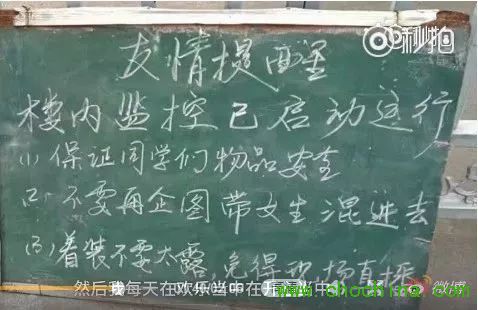 秒拍
友情提醒
楼内监控已启动运行
(1) 保证同学们物品安全
(2) 不要再企图带女生混进去
(3) 着装不要太露,免得现场直播
然后我每天在欢乐当中在
微博